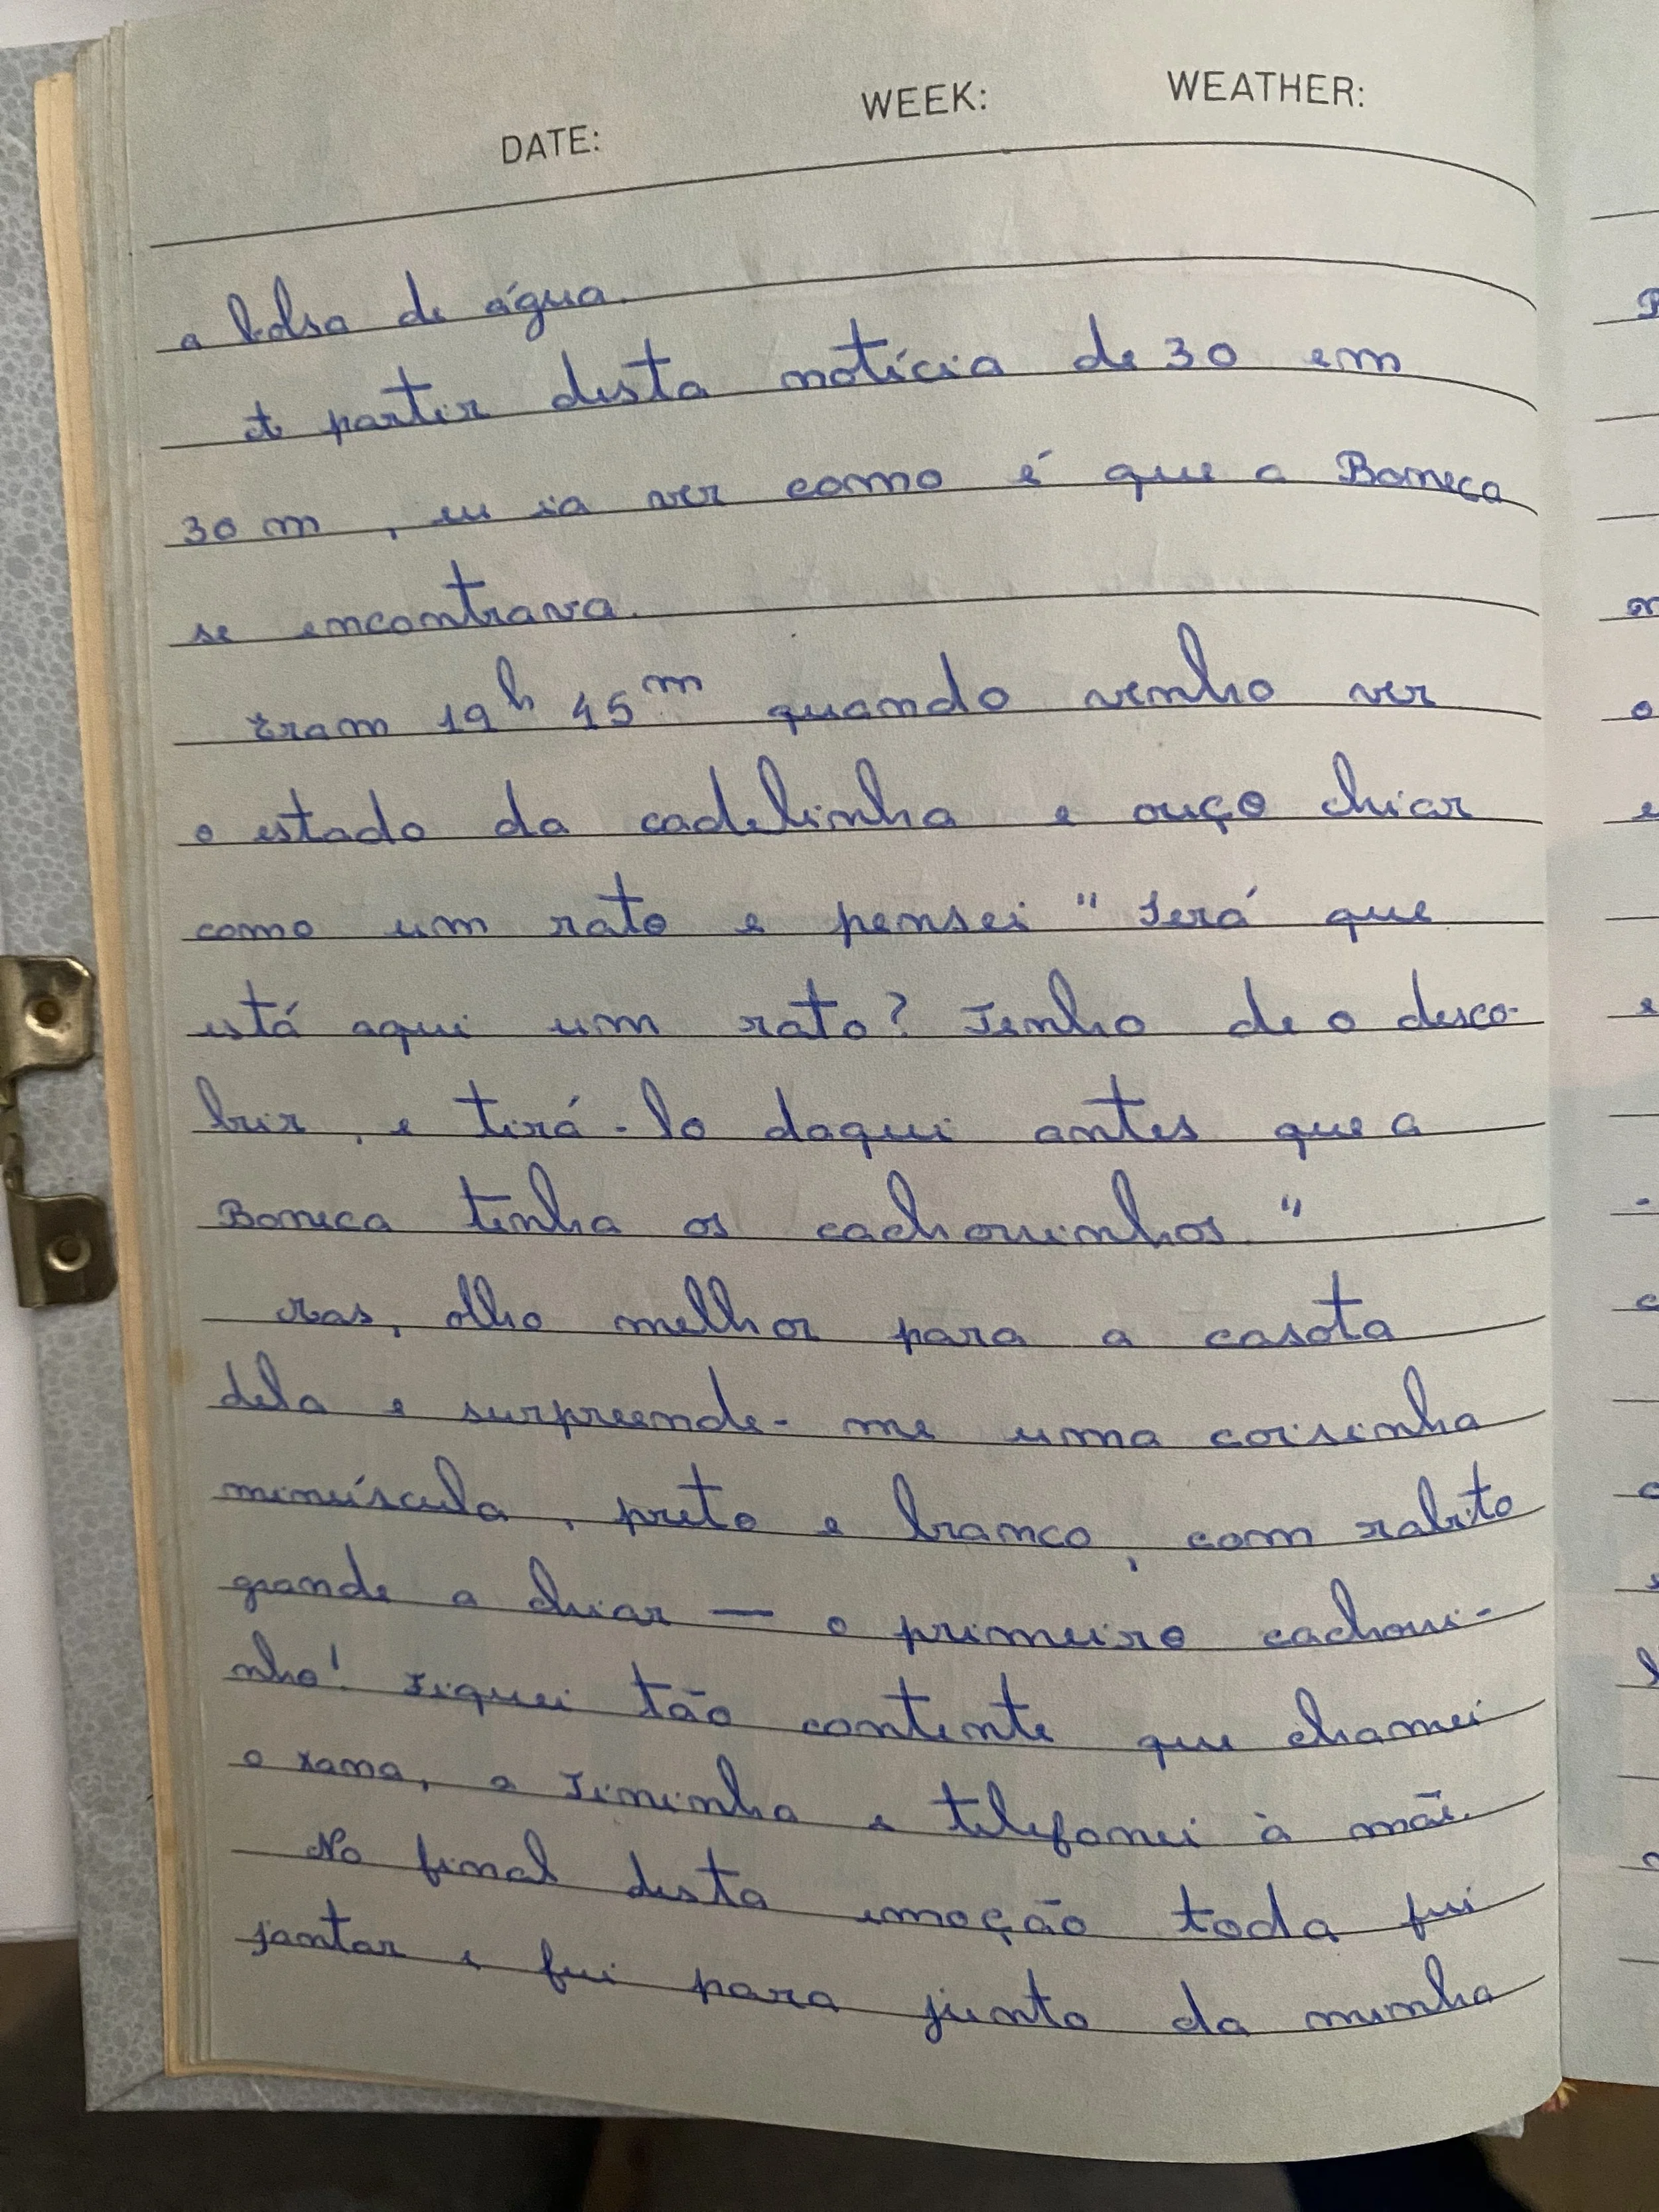 DATE: WEEK: WEATHER:
a bolsa de água.
A partir desta notícia de 30 em
30 m, eu ia ver como é que a Boneca
se encontrava.
Eram 19h 45m quando venho ver
o estado da cadelinha e ouço chiar
como um rato e pensei "Será que
está aqui um rato? Tenho de o desco-
brir, e tirá-lo daqui antes que a
Boneca tenha os cachorrinhos."
Mas, olho melhor para a casota
dela e surpreende-me uma coisinha
minúscula, preto e branco, com rabito
grande a chiar — o primeiro cachorri-
nho! Fiquei tão contente que chamei
o Xana, a Tininha e telefonei à mãe.
No final desta emoção toda fui
jantar e fui para junto da minha